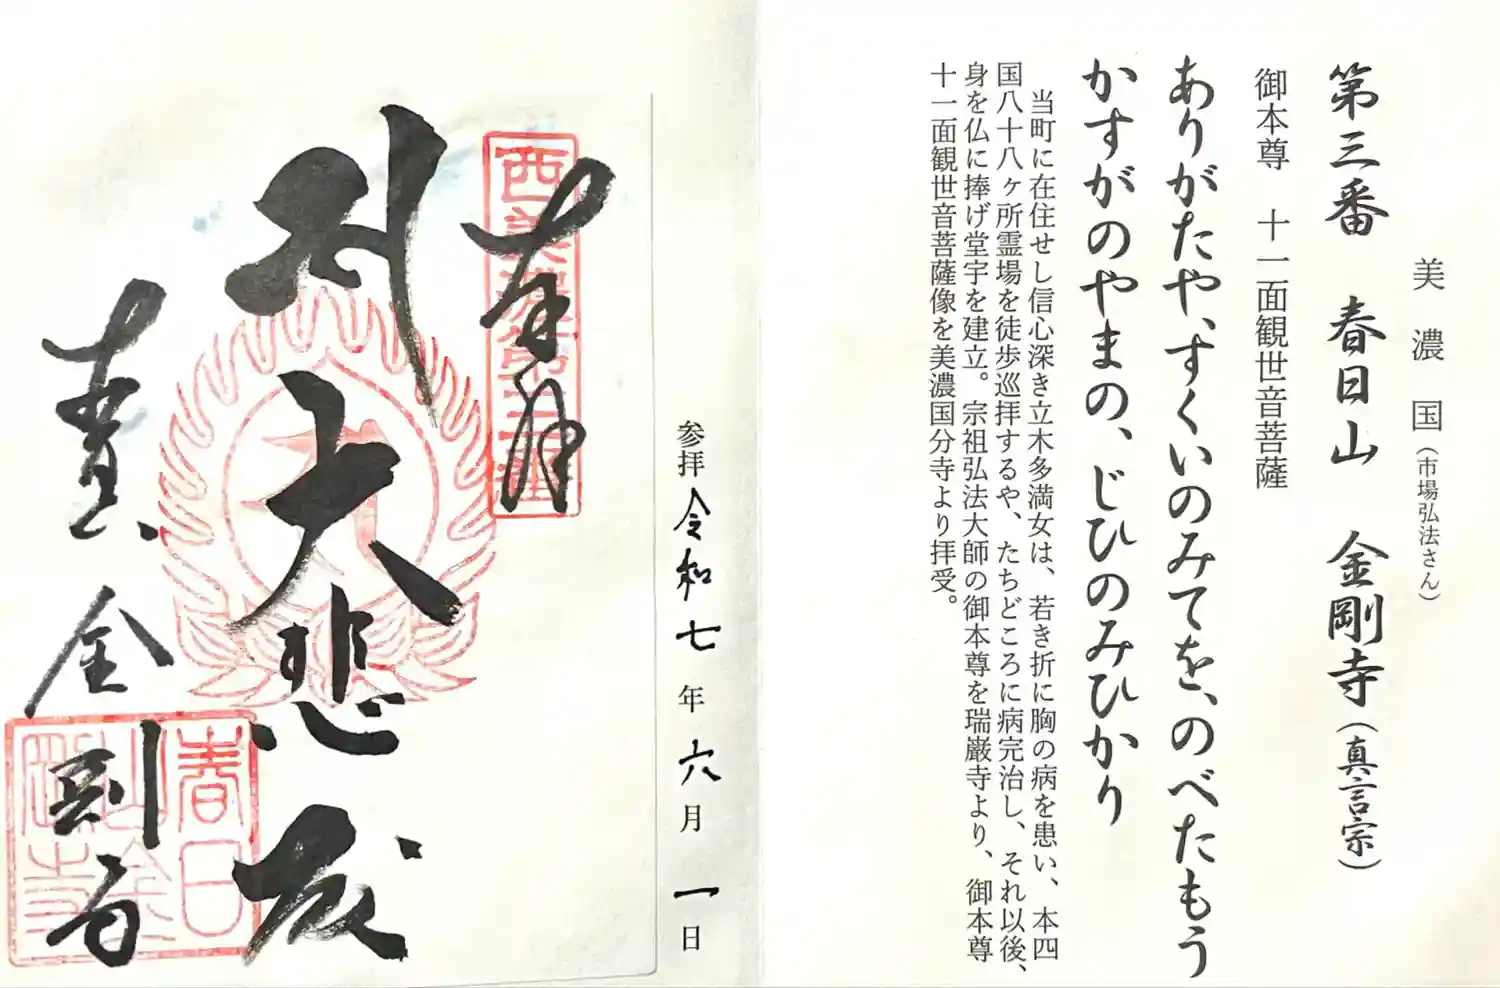 美濃国(市場弘法さん)
第三番 春日山 金剛寺(真言宗)
御本尊 十一面観世音菩薩
ありがたや、すくいのみてを、のべたもう
かすがのやまの、じひのみひかり
当町に在住せし信心深き立木多満女は、若き折に胸の病を患い、本四
国八十八ヶ所霊場を徒歩巡拝するや、たちどころに病完治し、それ以後、
身を仏に捧げ堂宇を建立。宗祖弘法大師の御本尊を瑞巌寺より、御本尊
十一面観世音菩薩像を美濃国分寺より拝受。
参拝 令和七年六月一日
奉拝
西美濃第三番
大悲殿
春日山金剛寺
金剛寺